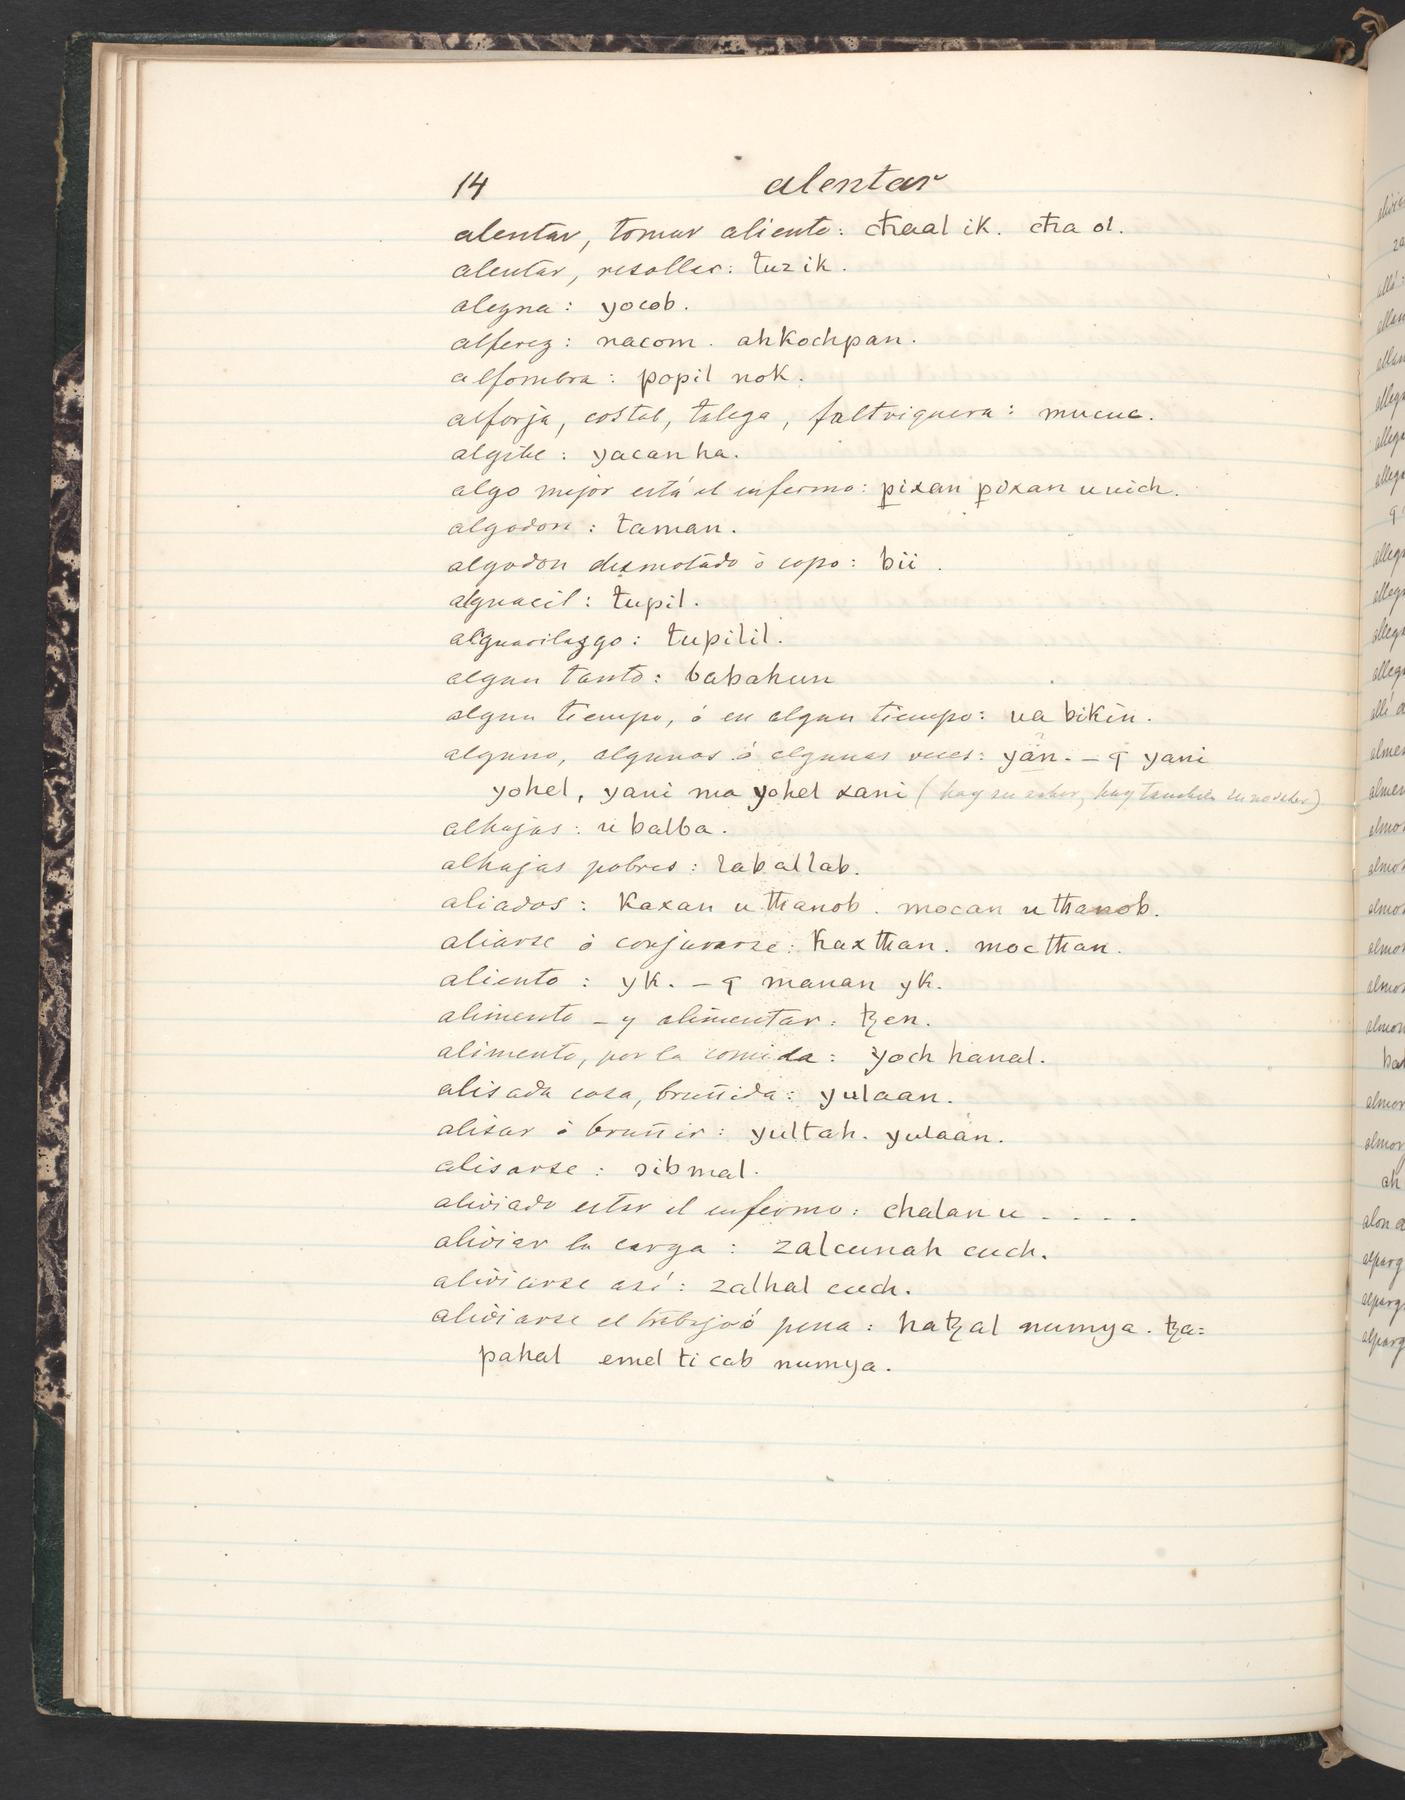 14 alentar
alentar, tomar aliento: cħaal ik. cħa ol.
alentar, resollar: tuz ik.
alegna: yocob.
alferez: nacom. ahkochpan.
alfombra: popil nok.
alforja, costal, talega, faltriquera: mucuc.
algibe: yacanha.
algo mejor está el enfermo: p̱ixan p̱ixan uuich.
algodon: taman.
algodon desmotado ò copo: bii.
alguacil: tupil.
alguacilazgo: tupilil.
algun tanto: babahun
algun tiempo, ó en algun tiempo: ua bikin.
alguno, algunos ó algunas veces: yan. – q yani
yohel, yani ma yohel xani (hay su saber, hay tambien su no saber)
alhajas: u balba.
alhajas pobres: lab al lab.
aliados: Kaxan u tħanob. mocan u tħanob.
aliarse ò conjurarse: kaxtħan. moctħan.
aliento: yk. – q manan yk.
alimento – y alimentar: ꜩen.
alimento, por la comida: yoch hanal.
alisada cosa, bruñida: yulaan.
alisar ò bruñir: yultah. yulaan.
alisarse: sibmal.
aliviado estar el enfermo: chalan u - . . .
aliviar la carga: zalcunah cuch.
aliviarse asi: zalhal cuch.
aliviarse el trabajo ó pena: haꜩal numya. ꜩa=
pahal emel ti cab numya.